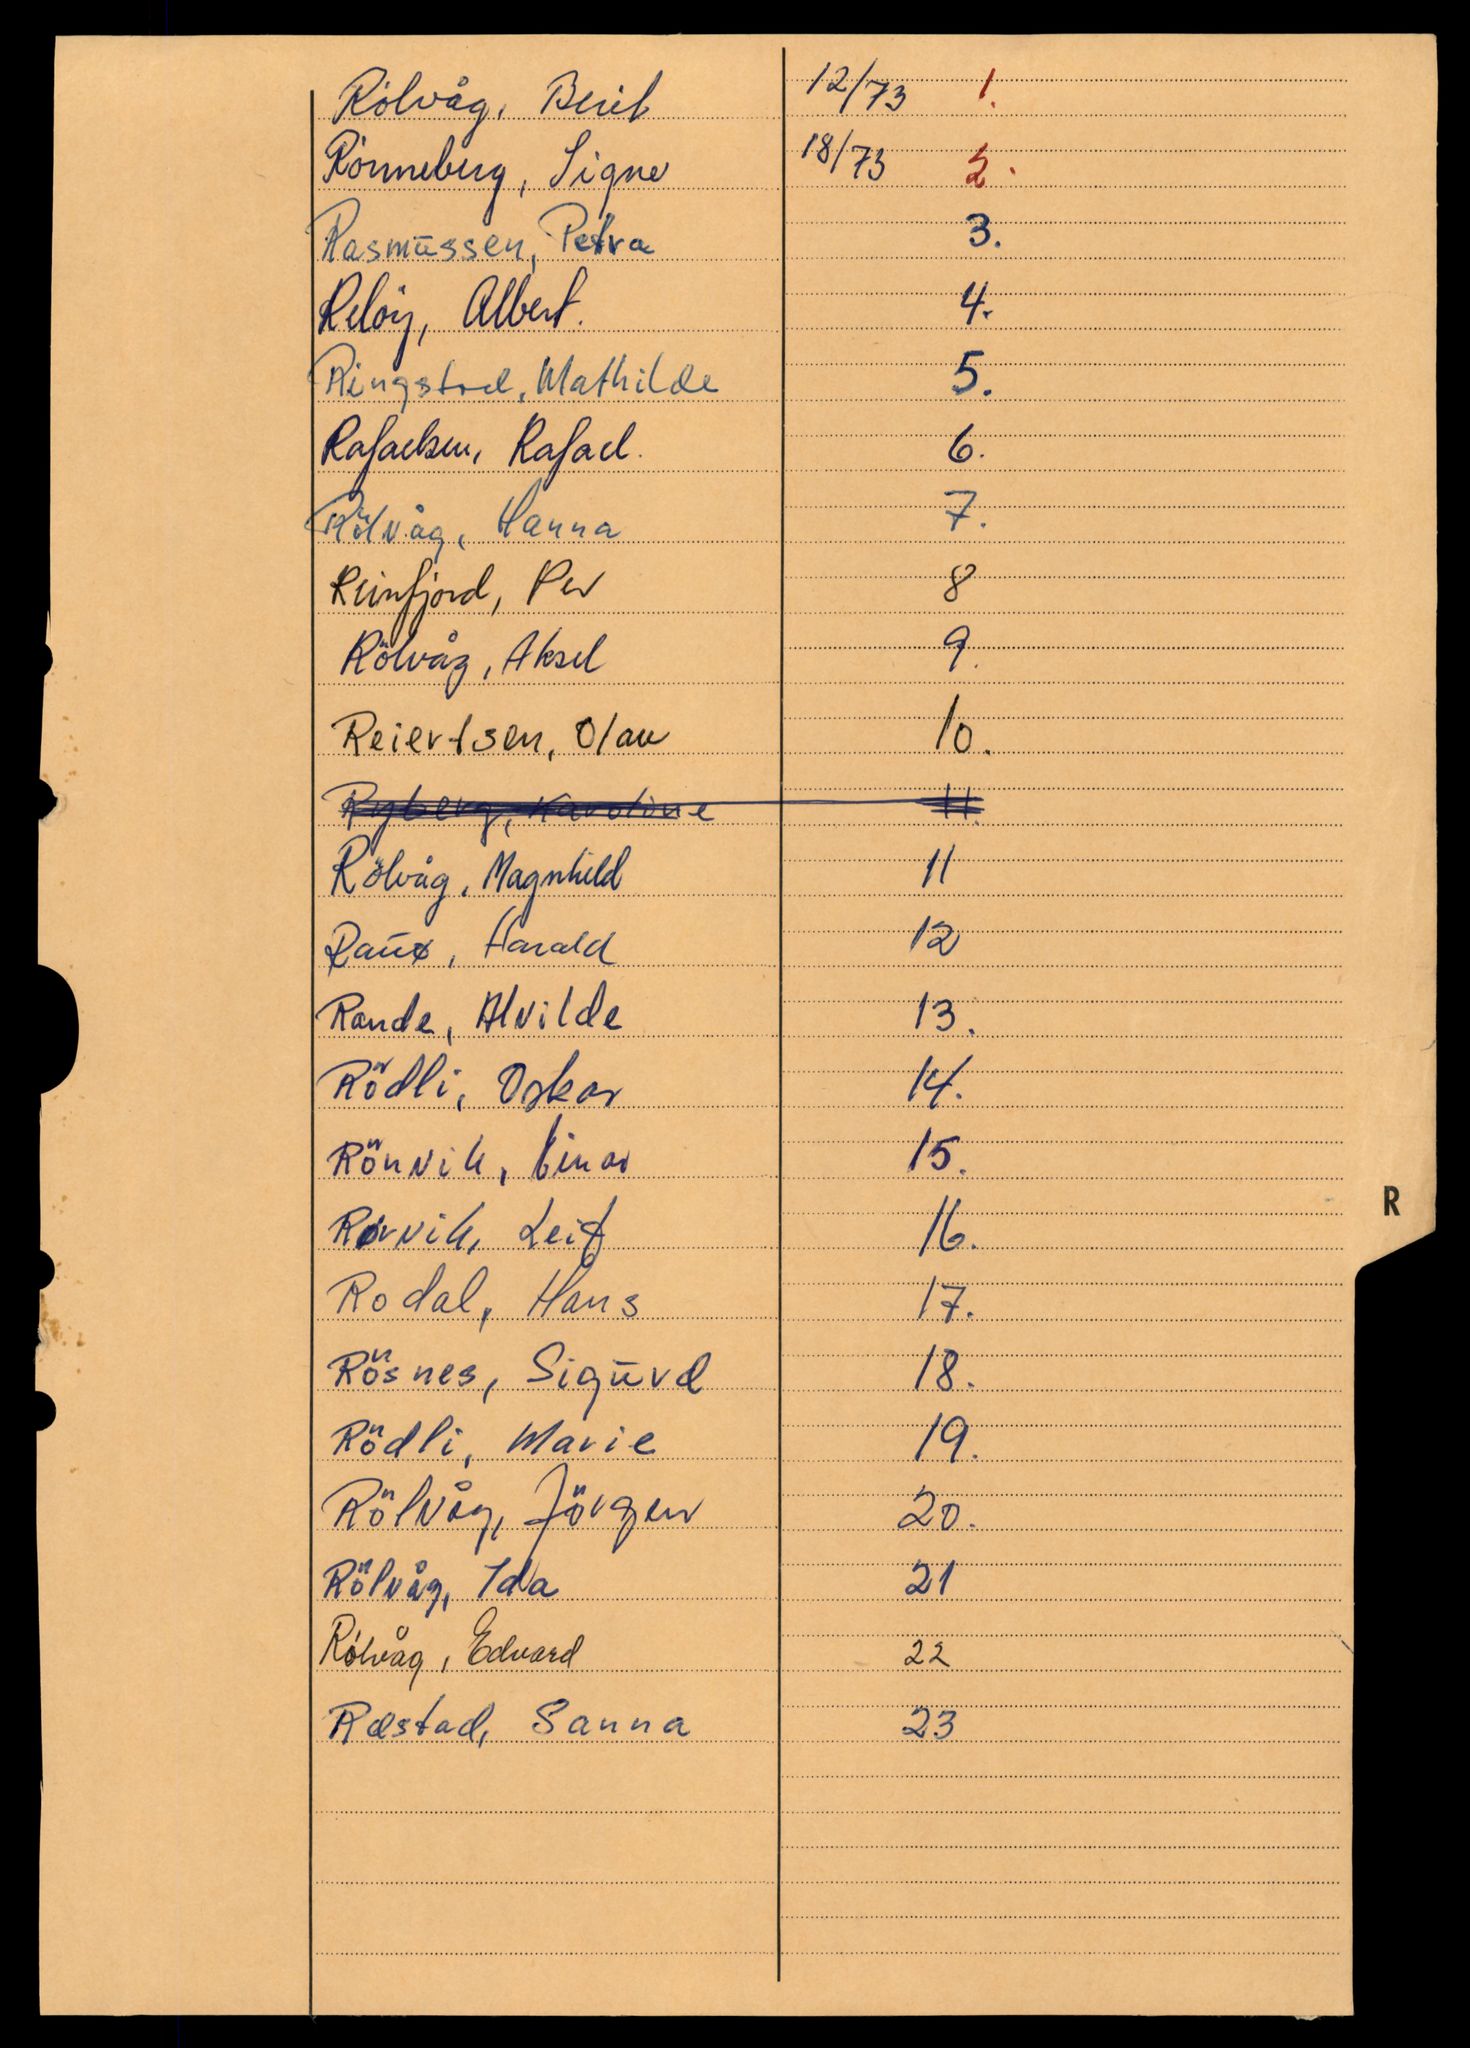 Rölvåg, Berit 12/73 1.
Rönneberg, Signe 18/73 2.
Rasmussen, Petra 3.
Relöy, Albert. 4.
Ringstad, Mathilde 5.
Rafaelsen, Rafael. 6.
Rölvåg, Hanna 7.
Reinfjord, Per 8
Rölvåg, Aksel 9.
Reiertsen, Olav 10.
Ryberg, Karoline 11.
Rölvåg, Magnhild 11
Harald 12
Rande, Alvilde 13.
Rödli, Oskar 14.
Rönvik, Einar 15.
Rørvik, Leif 16.
Rodal, Hans 17.
R
Rösnes, Sigurd 18.
Rödli, Marie 19.
Rölvåg, Jörgen 20.
Rölvåg, Ida 21
Rölvåg, Edvard 22
Ræstad, Sanna 23